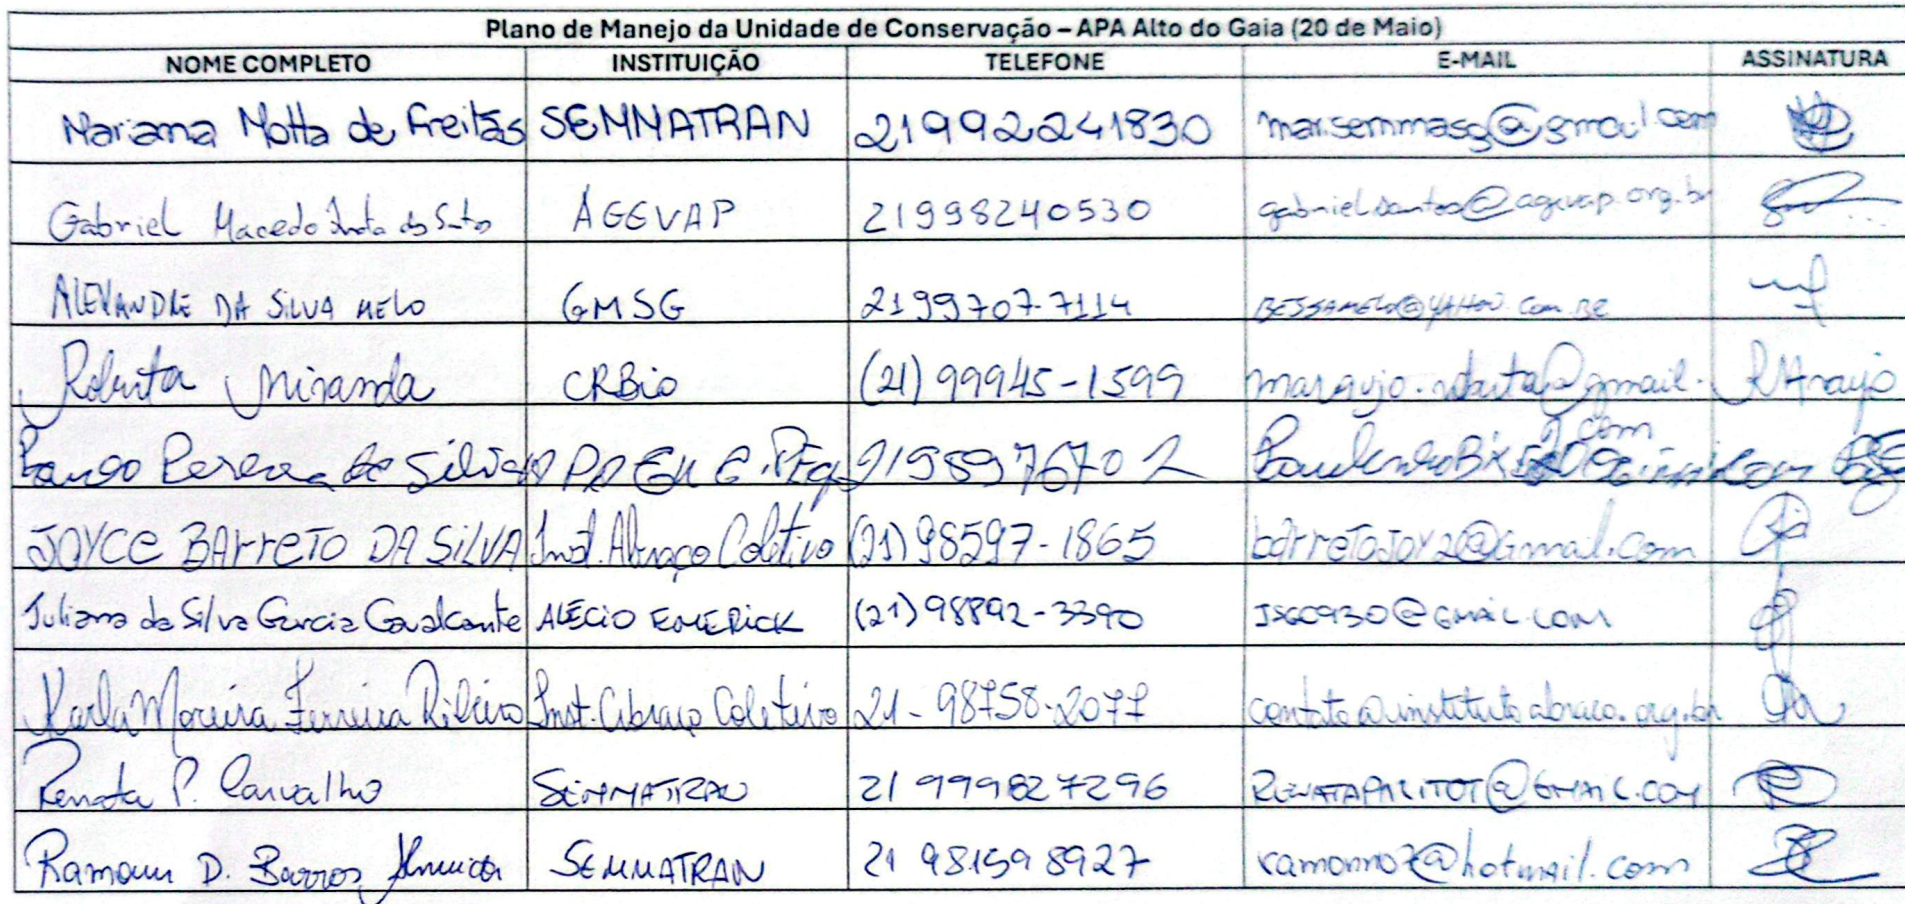 Plano de Manejo da Unidade de Conservação – APA Alto do Gaia (20 de Maio)
NOME COMPLETO INSTITUIÇÃO TELEFONE E-MAIL ASSINATURA
Mariana Motta de Freitas SEMMATRAN 21992241830 mari.semmasg@gmail.com
Gabriel Macedo dos Santos AGEVAP 21998240530 gabriel.santos@agevap.org.br
ALEXANDRE DA SILVA MELO GMSG 2199707-7114 BESSAMELO@YAHOO.COM.BR
Roberta Miranda CRBio (21) 99945-1599 maraujo.roberta@gmail.com RMAraujo
Pereira da Silva
JOYCE BArreTO DA SiLVA Inst. Abraço Coletivo (21) 98597-1865 barretojoy2@Gmail.com
Juliana da Silva Garcia Cavalcante ALÉCIO EMERICK (21) 98892-3390 JSGC930@GMAIL.COM
Karla Moreira Ferreira Ribeiro Inst. Abraço Coletivo 21-98758-2077 contato@institutoabraco.org.br
Renata P. Carvalho SEMMATRAN 21 999827296 RENATAPARITOT@GMAIL.COM
Ramonn D. Barros Almeida SEMMATRAN 21 981598927 ramonno7@hotmail.com